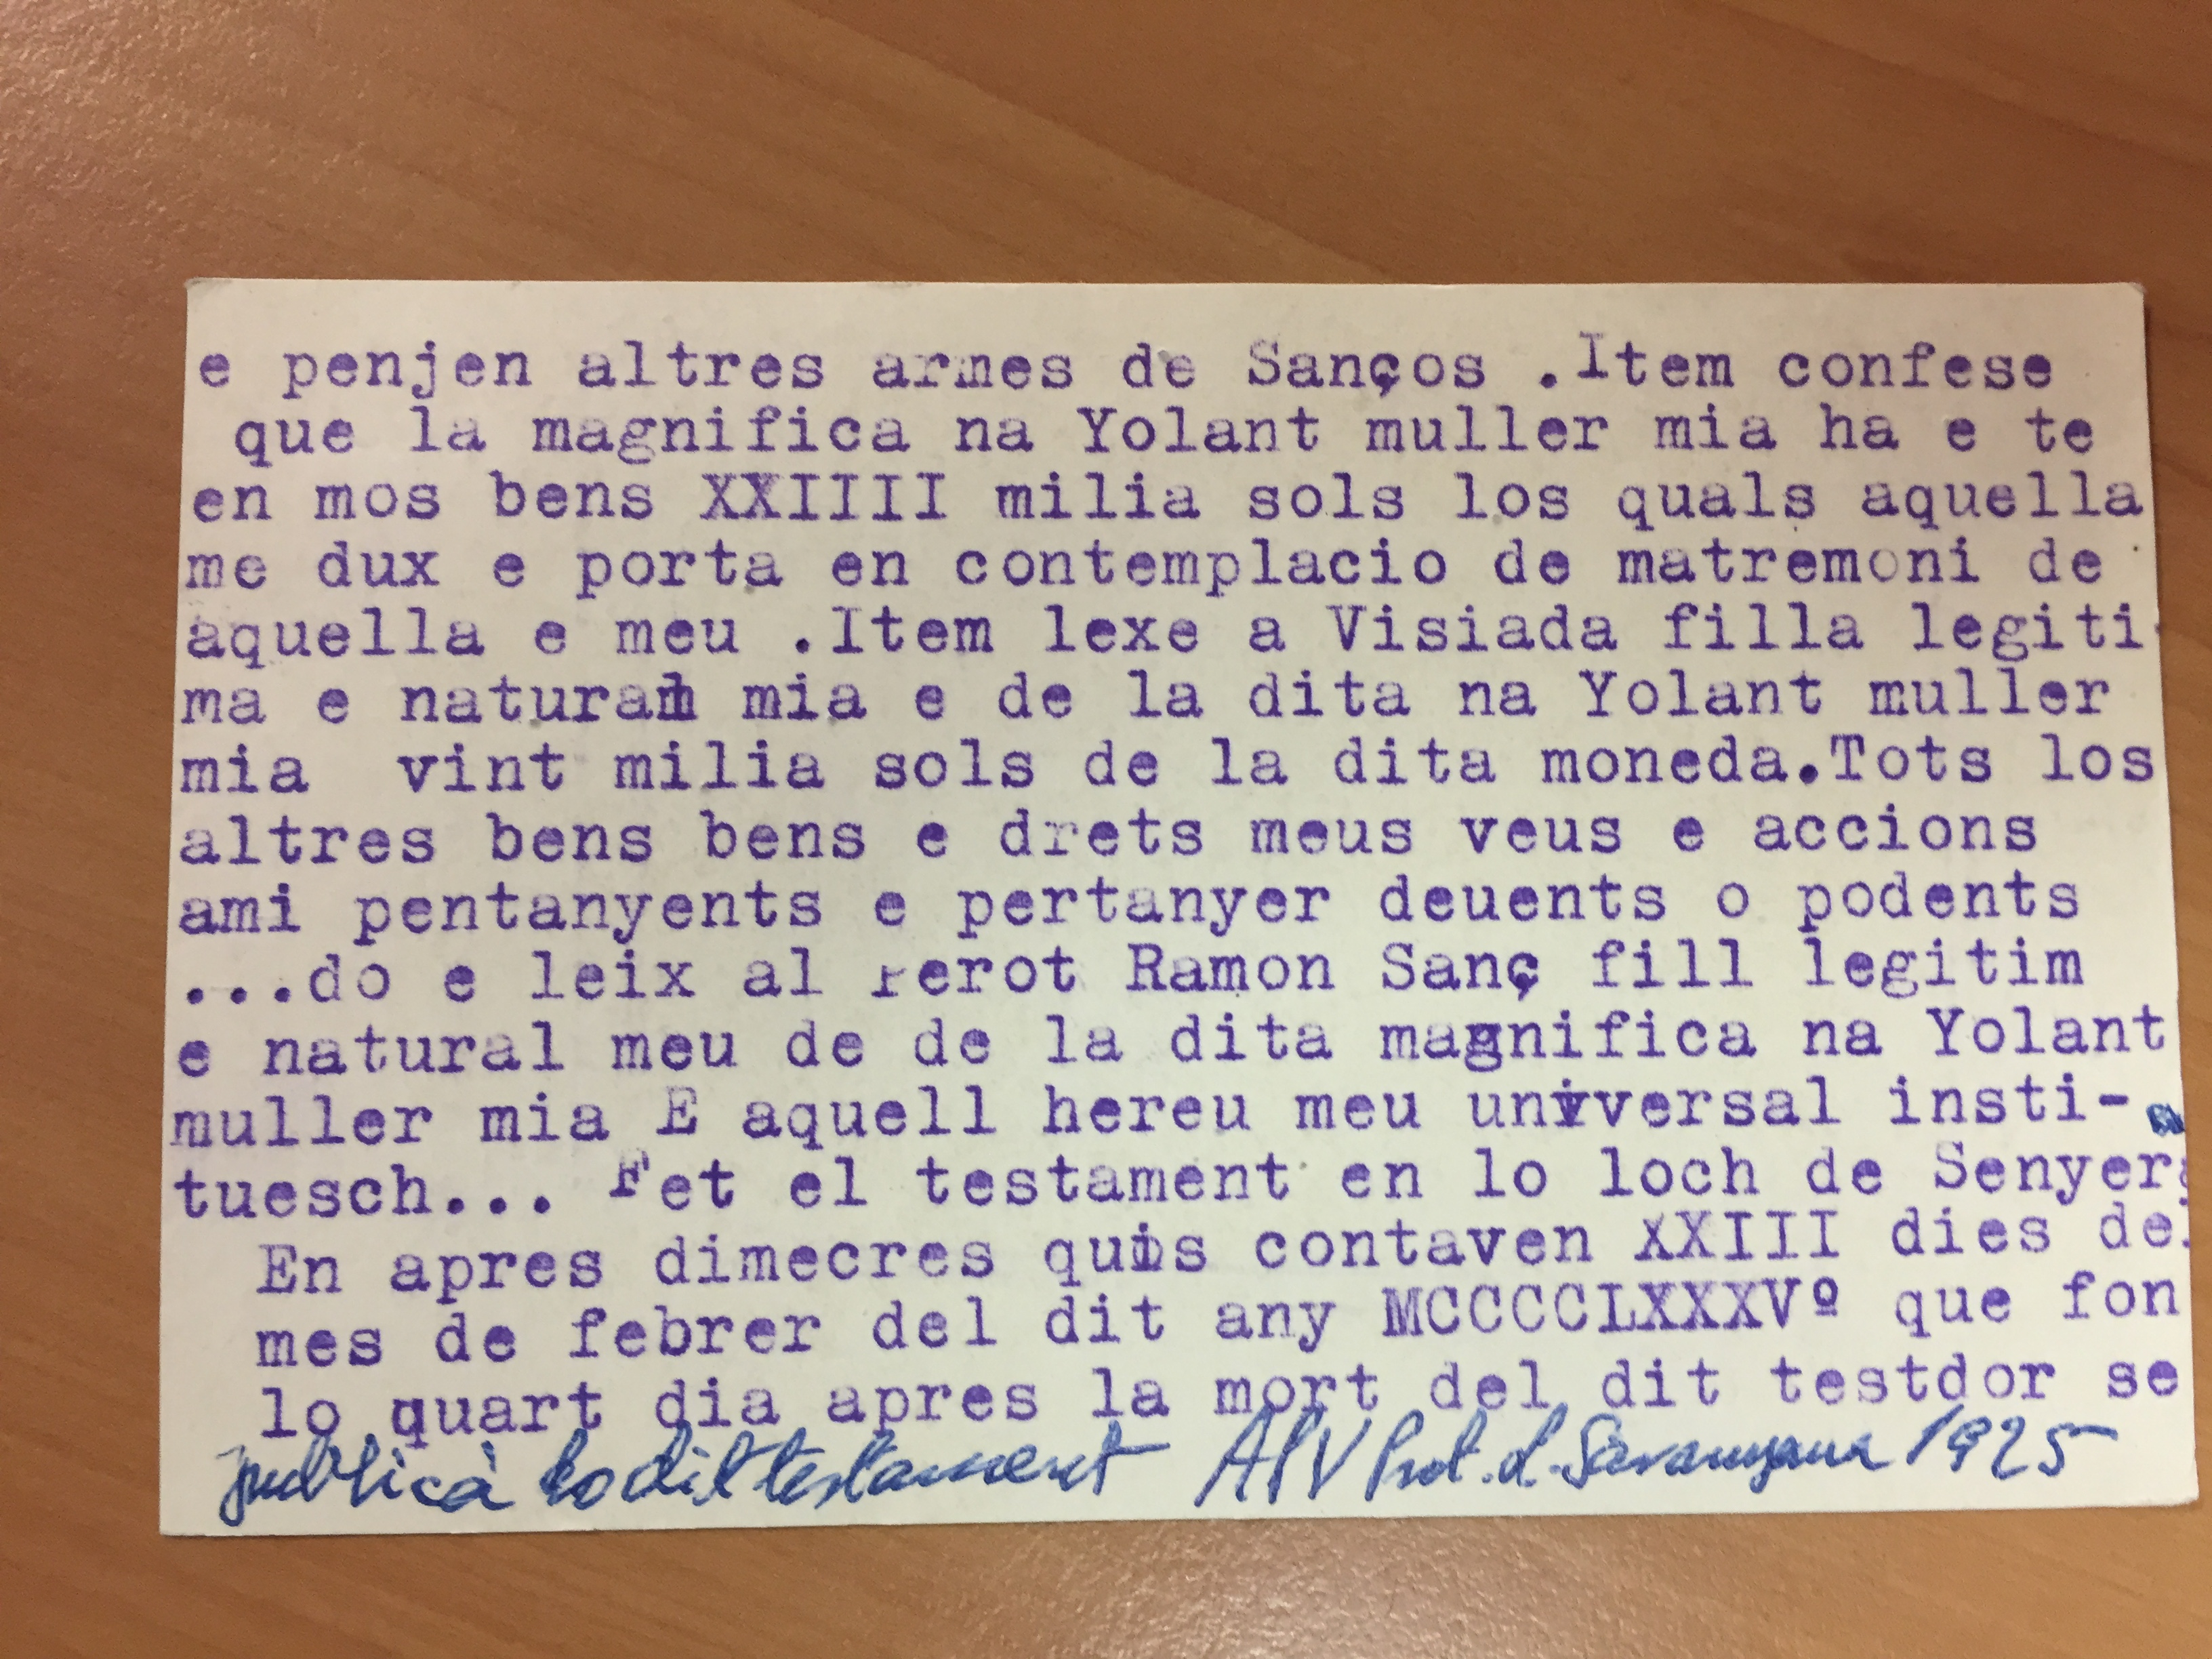 e penjen altres armes de Sanços .Item confese
que la magnifica na Yolant muller mia ha e te
en mos bens XXIIII milia sols los quals aquella
me dux e porta en contemplacio de matremoni de
aquella e meu .Item lexe a Visiada filla legiti
ma e natural mia e de la dita na Yolant muller
mia vint milia sols de la dita moneda.Tots los
altres bens bens e drets meus veus e accions
ami pentanyents e pertanyer deuents o podents
...do e leix al Perot Ramon Sanç fill legitim
e natural meu de de la dita magnifica na Yolant
muller mia E aquell hereu meu universal insti-
tuesch... Fet el testament en lo loch de Senyera
En apres dimecres quis contaven XXIII dies del
mes de febrer del dit any MCCCCLXXXVº que fon
lo quart dia apres la mort del dit testdor se
publicà lo dit testament APV Prot. d. 1925